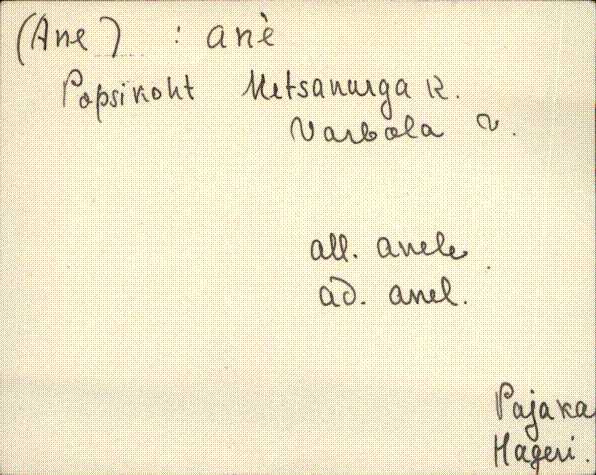 (Ane) : anè
Popsikoht Metsanurga k.
Varbola v.
all. anele
ad. anel.
Pajaka
Hageri.